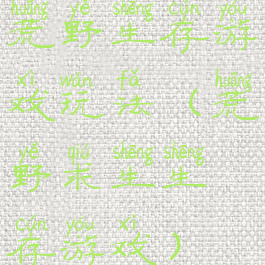 huāng yě shēng cún yóu
荒野生存游
xì wán fǎ huāng
戏玩法（荒
yě qiú shēng shēng
野求生生
cún yóu xì
存游戏）